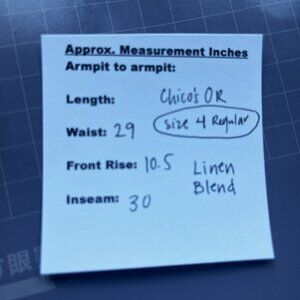 Approx. Measurement Inches
Armpit to armpit:
Length:
Chico's OR
Waist: 29
Size 4 Regular
Front Rise: 10.5
Linen
Blend
Inseam: 30
眼